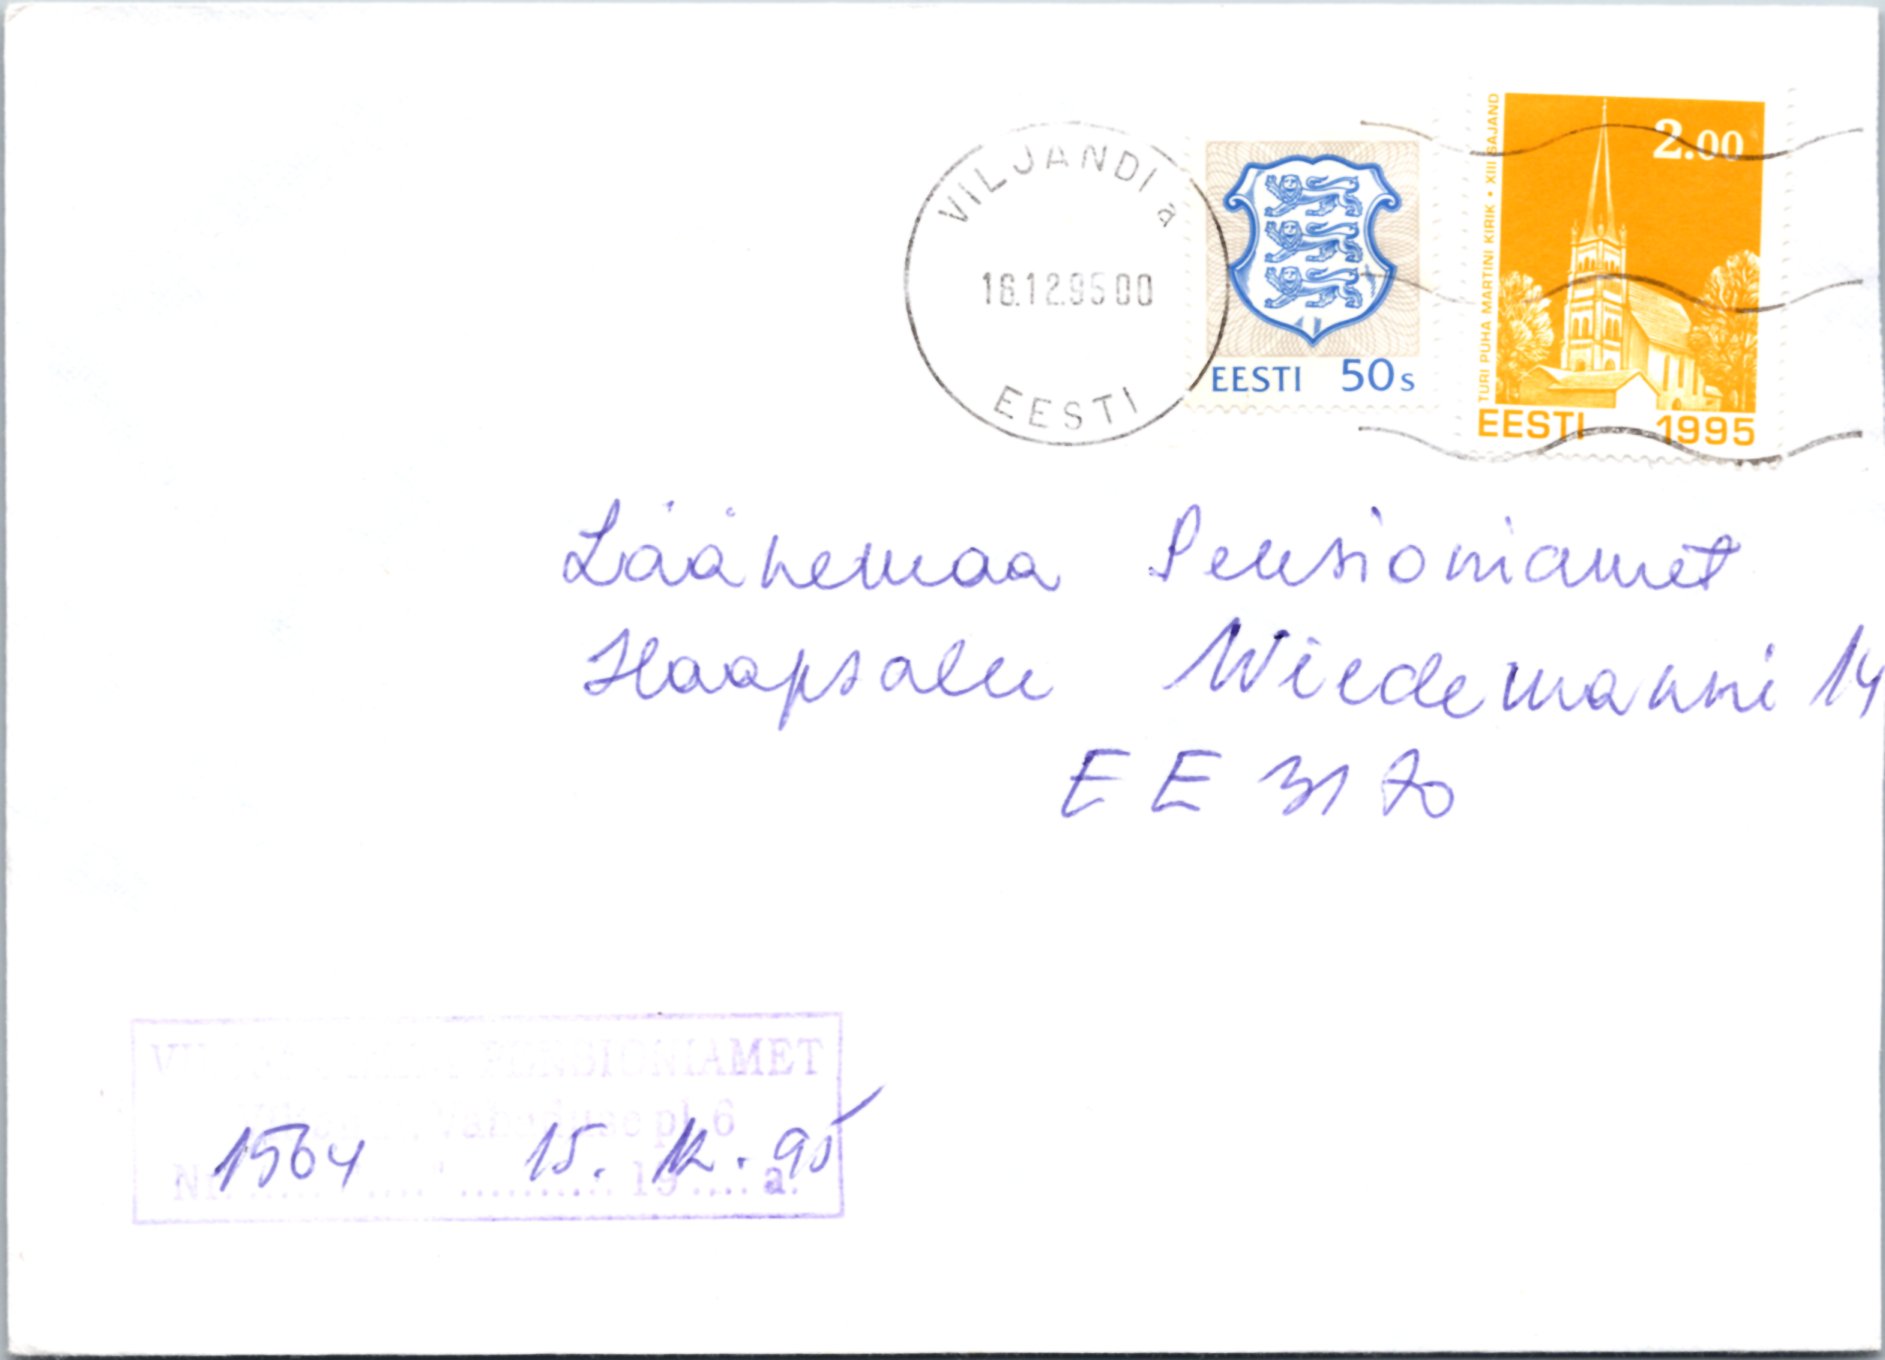 VILJANDI a
16.12.95 00
EESTI
EESTI 50s
2.00
TÜRI PÜHA MARTINI KIRIK • XIII SAJAND
EESTI 1995
Läänemaa Pensioniamet
Haapsalu Wiedemanni 14
EE 3170
PENSIONIAMET
Vabaduse pl. 6
Nr. 1564 15. 12. 1995 a.